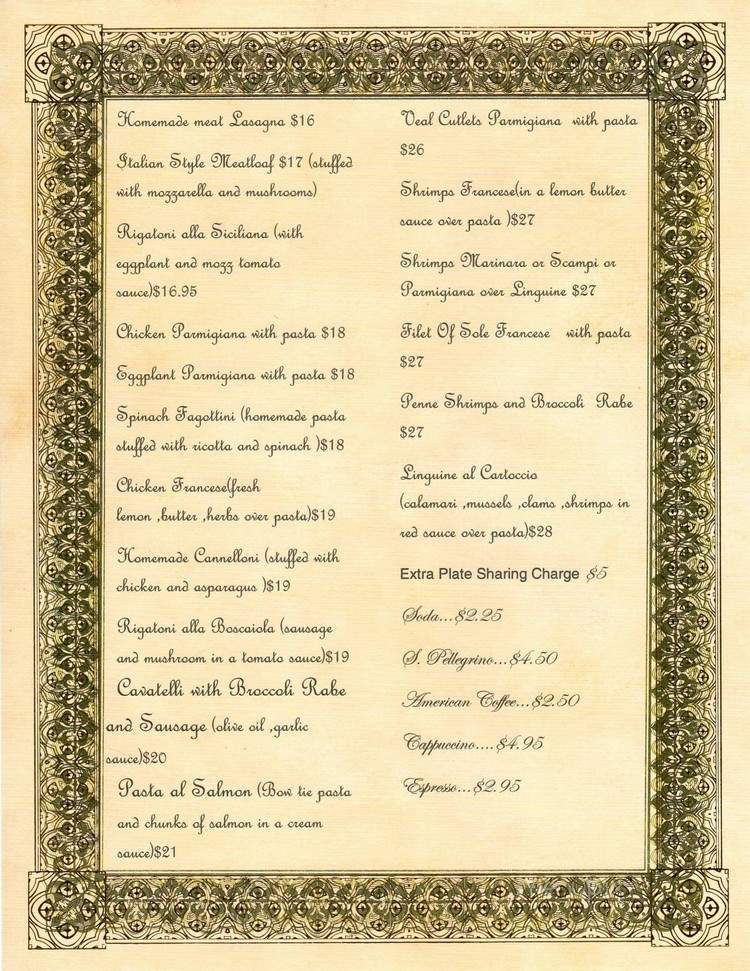 Homemade meat Lasagna $16
Italian Style Meatloaf $17 (stuffed
with mozzarella and mushrooms)
Rigatoni alla Siciliana (with
eggplant and mozz tomato
sauce)$16.95
Chicken Parmigiana with pasta $18
Eggplant Parmigiana with pasta $18
Spinach Fagottini (homemade pasta
stuffed with ricotta and spinach )$18
Chicken Francese(fresh
lemon ,butter ,herbs over pasta)$19
Homemade Cannelloni (stuffed with
chicken and asparagus )$19
Rigatoni alla Boscaiola (sausage
and mushroom in a tomato sauce)$19
Cavatelli with Broccoli Rabe
and Sausage (olive oil ,garlic
sauce)$20
Pasta al Salmon (Bow tie pasta
and chunks of salmon in a cream
sauce)$21
Veal Cutlets Parmigiana with pasta
$26
Shrimps Francese(in a lemon butter
sauce over pasta )$27
Shrimps Marinara or Scampi or
Parmigiana over Linguine $27
Filet Of Sole Francese with pasta
$27
Penne Shrimps and Broccoli Rabe
$27
Linguine al Cartoccio
(calamari ,mussels ,clams ,shrimps in
red sauce over pasta)$28
Extra Plate Sharing Charge $5
Soda...$2.25
S. Pellegrino...$4.50
American Coffee...$2.50
Cappuccino....$4.95
Espresso...$2.95